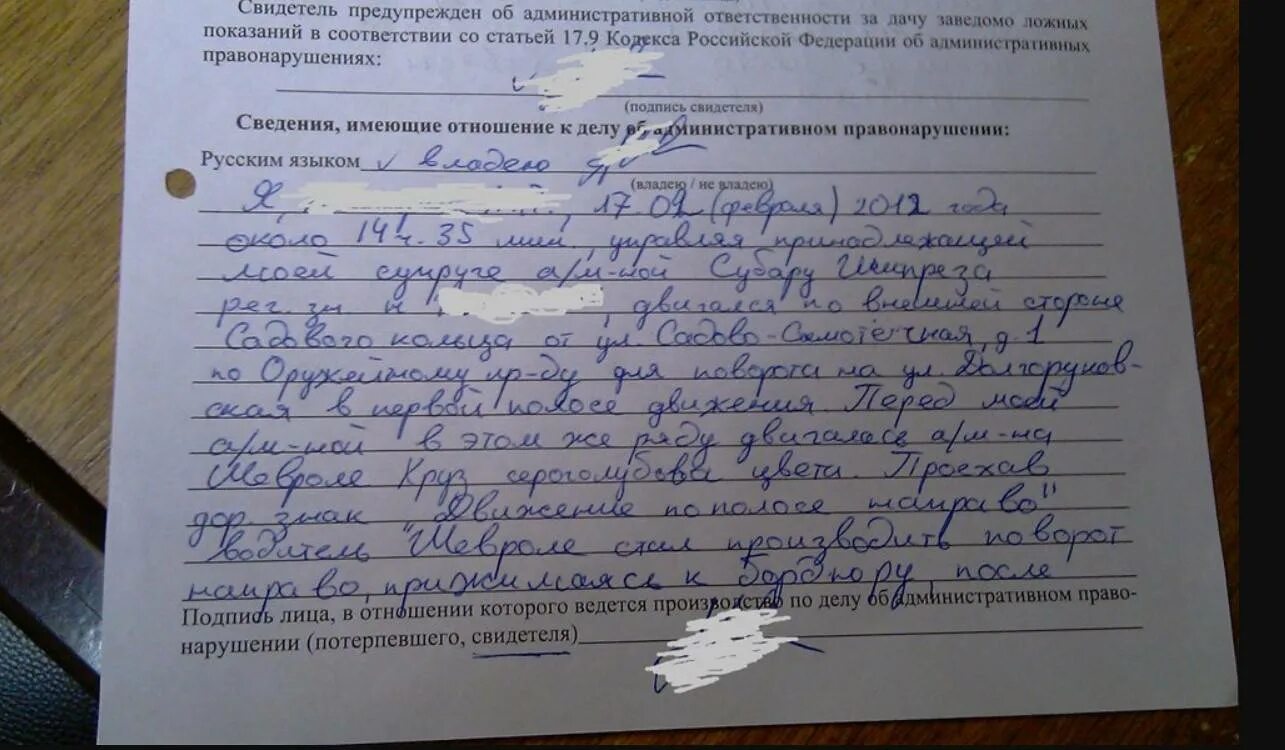 Свидетель предупрежден об административной ответственности за дачу заведомо ложных
показаний в соответствии со статьей 17.9 Кодекса Российской Федерации об административных
правонарушениях:
(подпись свидетеля)
Сведения, имеющие отношение к делу об административном правонарушении:
Русским языком владею
(владею / не владею)
Я, 17.02 (февраля) 2012 года
около 14 ч. 35 мин, управляя принадлежащей
моей супруге а/м-ной Субару Импреза
рег. зн н , двигался по внешней стороне
Садового кольца от ул. Садово-Самотёчная, д. 1
по Оружейному пр-ду для поворота на ул. Долгоруков-
ская в первой полосе движения. Перед моей
а/м-ной в этом же ряду двигалась а/м-на
Шевроле Круз сероголубова цвета. Проехав
дор. знак "Движение по полосе направо"
водитель "Шевроле стал производить поворот
направо, прижимаясь к бордюру, после
Подпись лица, в отношении которого ведется производство по делу об административном право-
нарушении (потерпевшего, свидетеля)